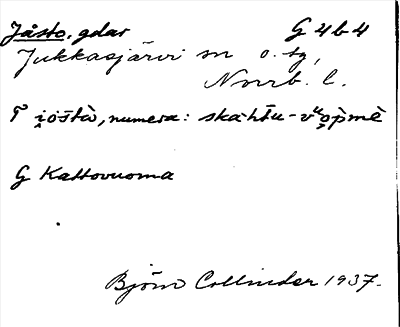 Jåsto, gdar G 4 b 4
Jukkasjärvi sn o. tg,
Norrb. l.
T i̯ȯ́štà, numera: ska·htu-vᵘo̯pmè
G Kattovuoma
Björn Collinder 1937.